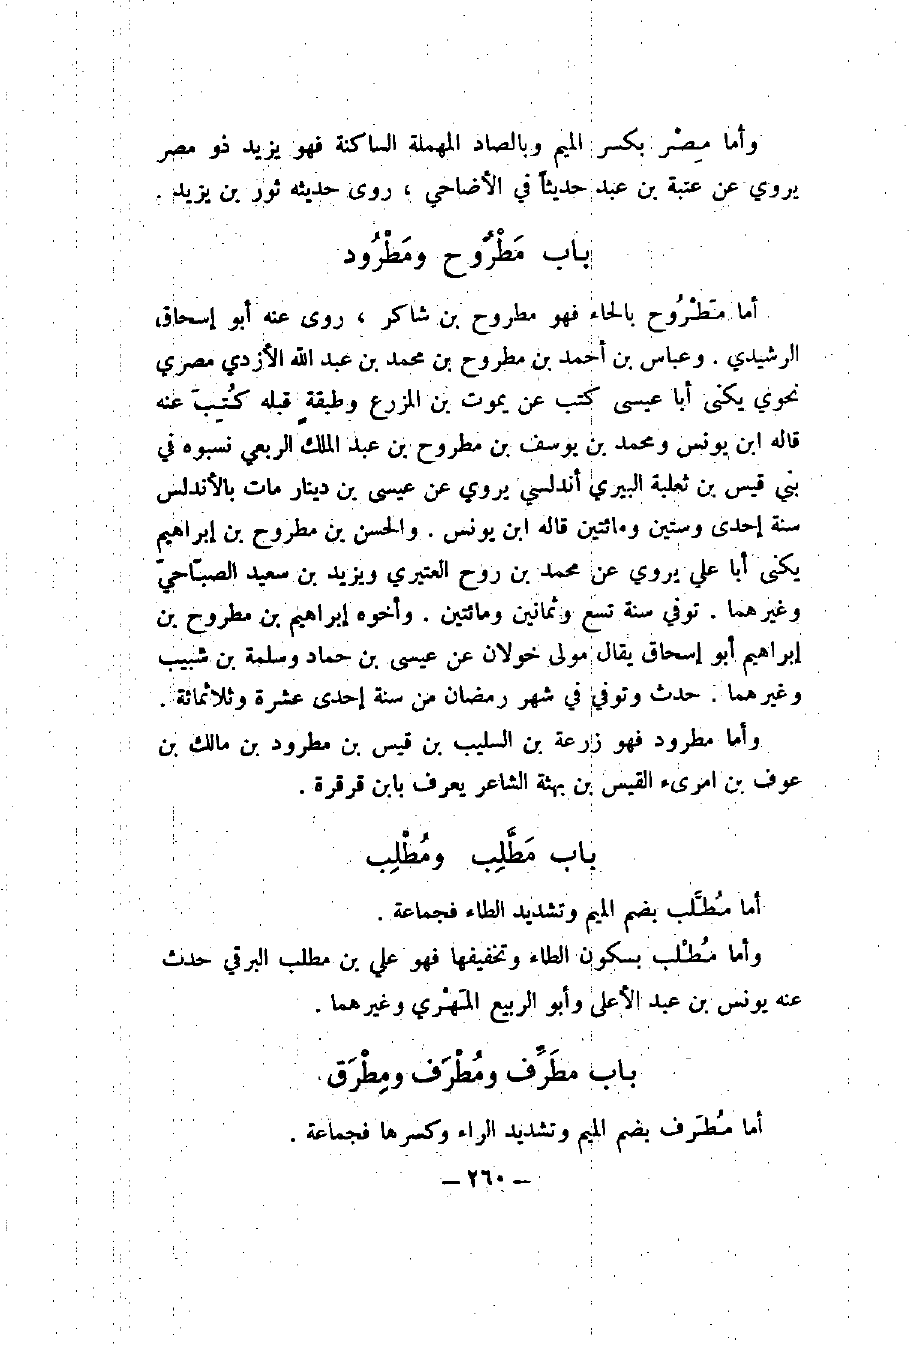 وأما مِصْر بكسر الميم وبالصاد المهملة الساكنة فهو يزيد ذو مصر
يروي عن عتبة بن عبد حديثاً في الأضاحي ، روى حديثه ثور بن يزيد .
باب مَطْرُوح ومَطْرُود
أما مَطْرُوح بالحاء فهو مطروح بن شاكر ، روى عنه أبو إسحاق
الرشيدي . وعباس بن أحمد بن مطروح بن محمد بن عبد الله الأزدي مصري
نحوي يكنى أبا عيسى كتب عن يموت بن المزرع وطبقةٍ قبله كُتِبَ عنه
قاله ابن يونس ومحمد بن يوسف بن مطروح بن عبد الملك الربعي نسبوه في
بني قيس بن ثعلبة البيري أندلسي يروي عن عيسى بن دينار مات بالأندلس
سنة إحدى وستين ومائتين قاله ابن يونس . والحسن بن مطروح بن إبراهيم
يكنى أبا علي يروي عن محمد بن روح العتيري ويزيد بن سعيد الصبّاحيّ
وغيرهما . توفي سنة تسع وثمانين ومائتين . وأخوه إبراهيم بن مطروح بن
إبراهيم أبو إسحاق يقال مولى خولان عن عيسى بن حماد وسلمة بن شبيب
وغيرهما . حدث وتوفي في شهر رمضان من سنة إحدى عشرة وثلاثمائة .
وأما مطرود فهو زرعة بن السليب بن قيس بن مطرود بن مالك بن
عوف بن امرىء القيس بن بهثة الشاعر يعرف بابن قرقرة .
باب مَطَّلِب ومُطْلِب
أما مُطَّلب بضم الميم وتشديد الطاء فجماعة .
وأما مُطْلب بسكون الطاء وتخفيفها فهو علي بن مطلب البرقي حدث
عنه يونس بن عبد الأعلى وأبو الربيع المَهْري وغيرهما .
باب مطَرِّف ومُطْرَف ومِطْرَق
أما مُطَرف بضم الميم وتشديد الراء وكسرها فجماعة .
– ٢٦٠ –